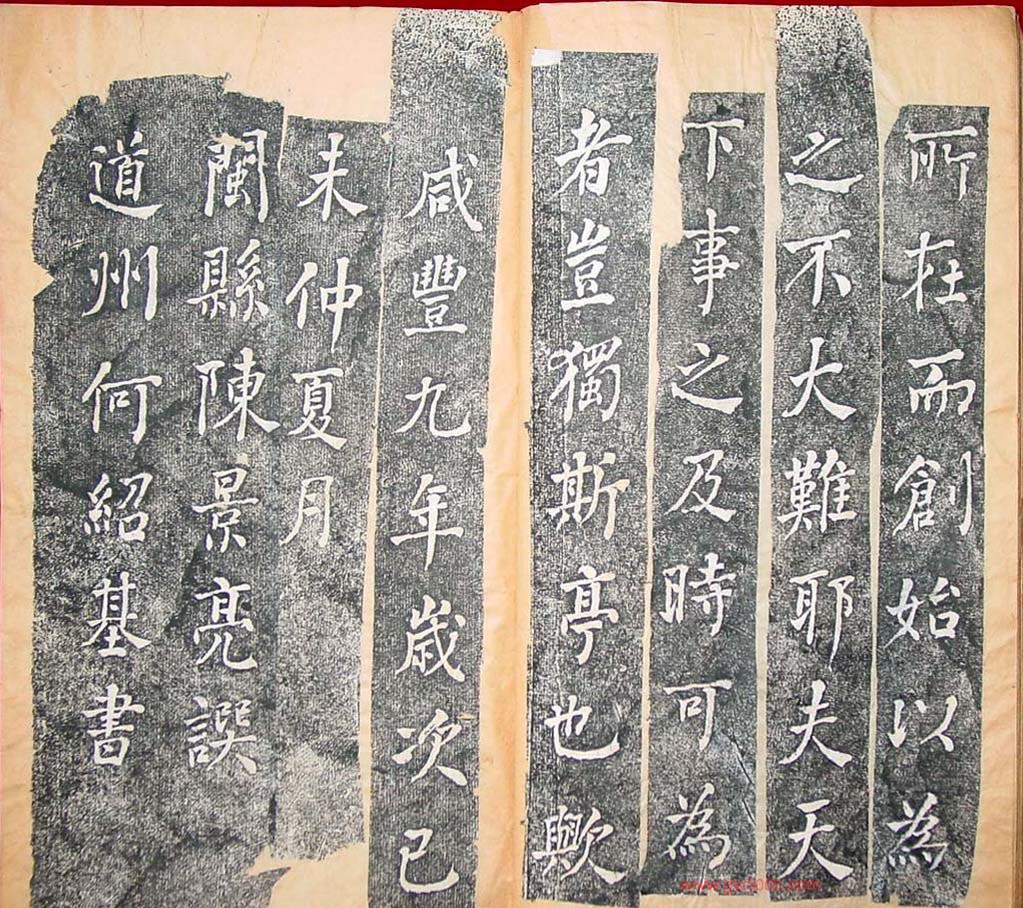 所在而創始以為
之不大難耶夫天
下事之及時可為
者豈獨斯亭也歟
咸豐九年歲次己
未仲夏月
閩縣陳景亮譔
道州何紹基書